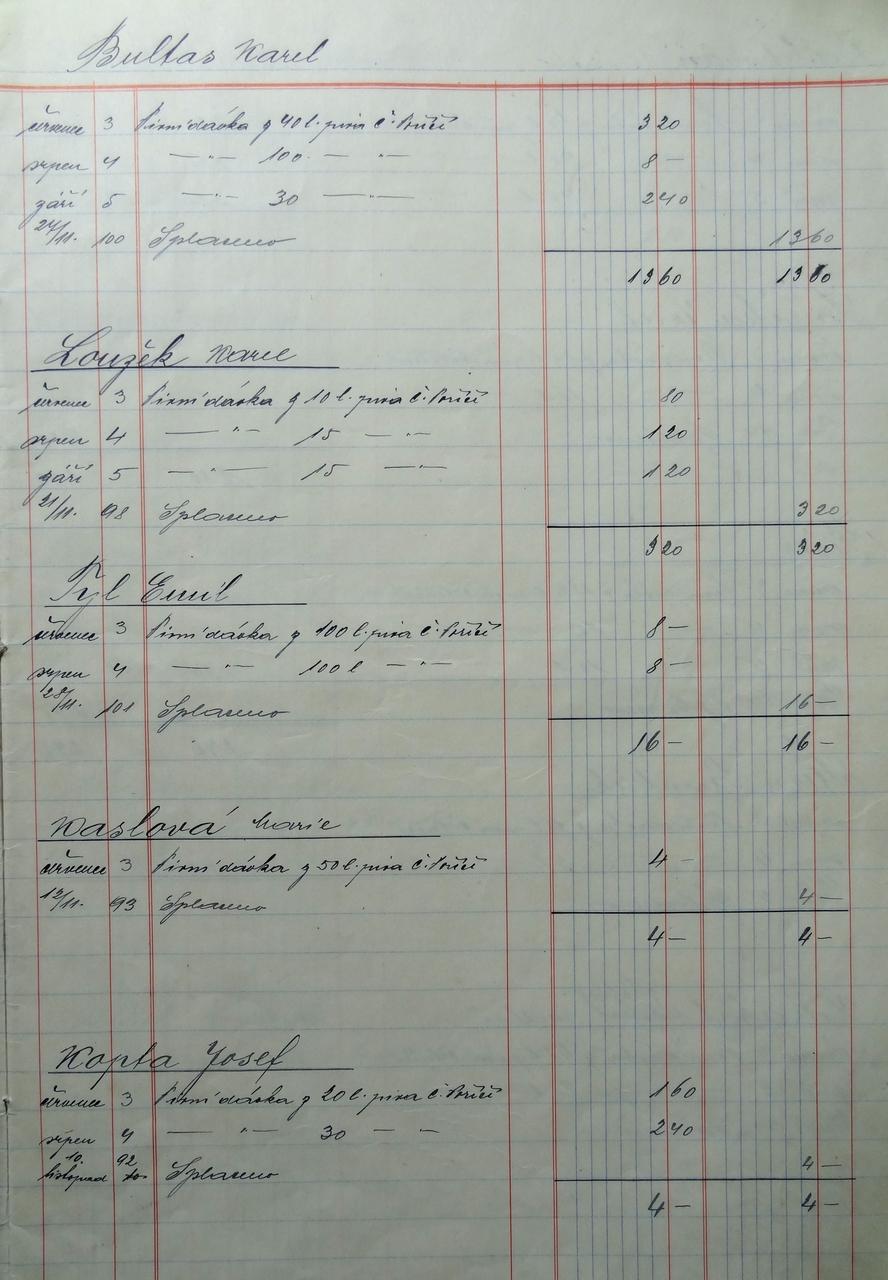 Bultas Karel
červenec 3 Pivní dávka z 40 l. piva Č. Poříčí 3 20
srpen 4 — " — 100 — " — 8 —
září 5 — " — 30 — " — 2 40
24/11. 100 Splaceno 13 60
13 60 13 60
Loužek Karel
červenec 3 Pivní dávka z 10 l. piva Č. Poříčí 80
srpen 4 — " — 15 — " — 1 20
září 5 — " — 15 — " — 1 20
21/11. 98 Splaceno 3 20
3 20 3 20
Pýl Emil
červenec 3 Pivní dávka z 100 l. piva Č. Poříčí 8 —
srpen 4 — " — 100 l — " — 8 —
28/11. 101 Splaceno 16 —
16 — 16 —
Kaslová Marie
červenec 3 Pivní dávka z 50 l. piva Č. Poříčí 4 —
12/11. 93 Splaceno 4 —
4 — 4 —
Kopta Josef
červenec 3 Pivní dávka z 20 l. piva Č. Poříčí 1 60
srpen 4 — " — 30 — " — 2 40
10. listopad 92 Splaceno 4 —
4 — 4 —